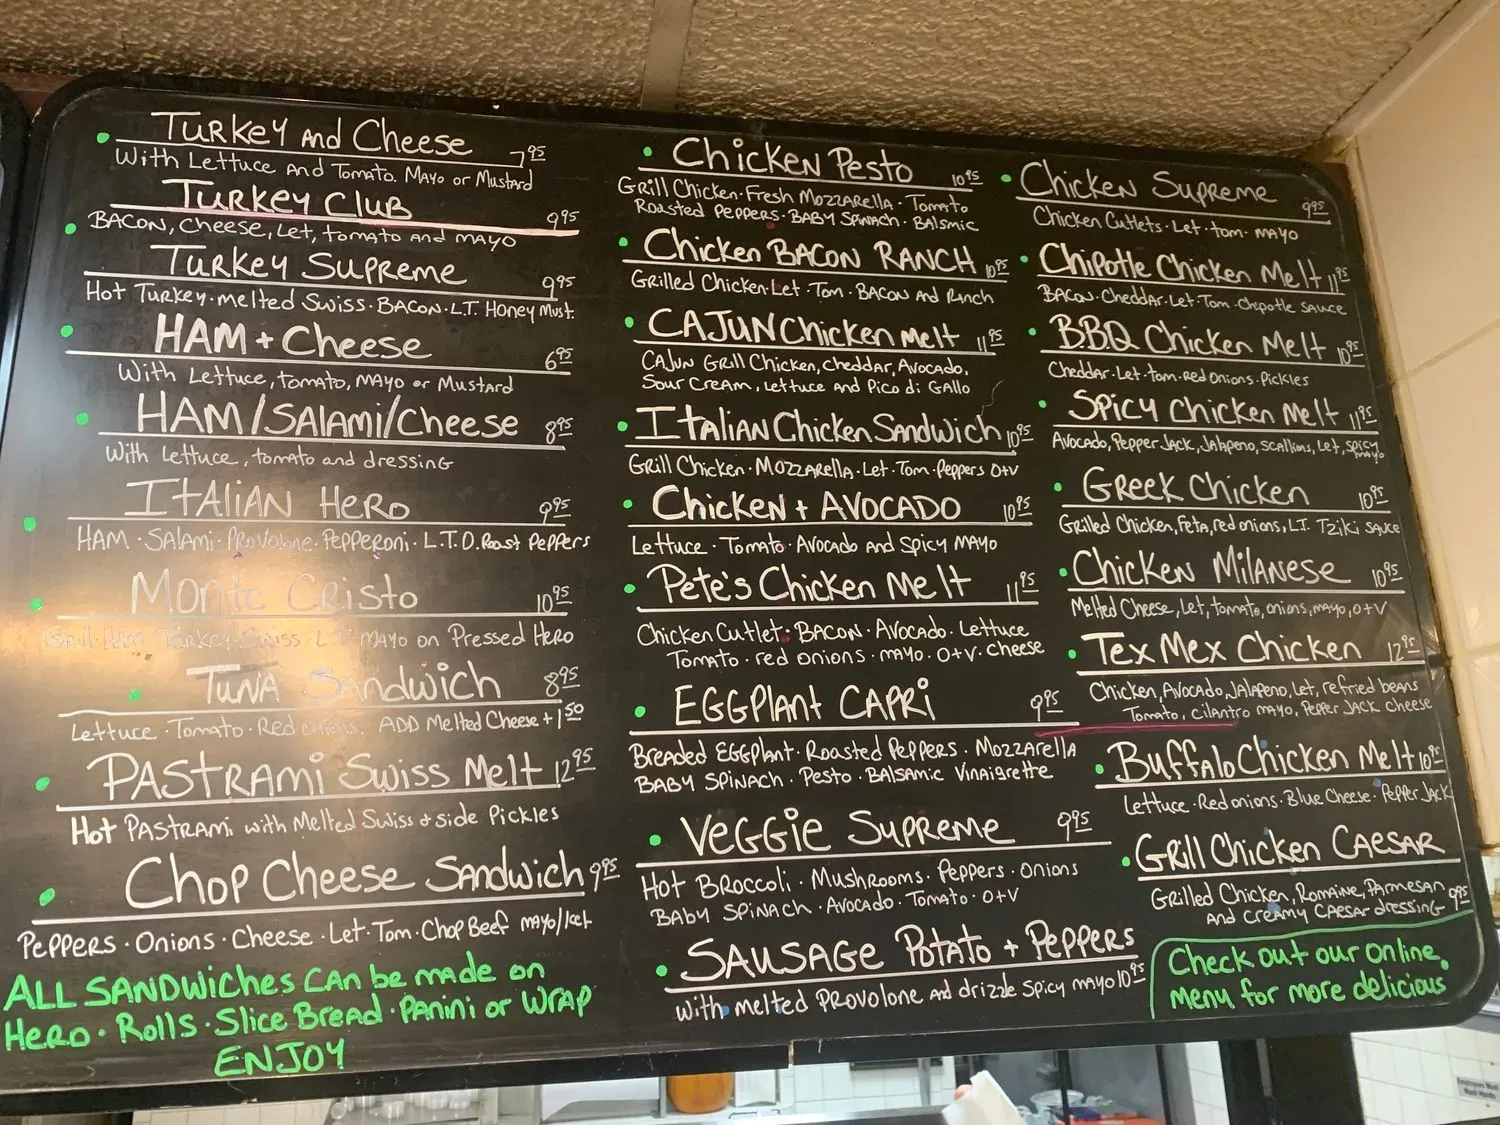 Turkey and Cheese 7.95
With Lettuce and Tomato. Mayo or Mustard
Turkey Club 9.95
Bacon, Cheese, Let, tomato and mayo
Turkey Supreme 9.95
Hot Turkey · melted Swiss · Bacon · L.T. Honey Must.
HAM + Cheese 6.95
With Lettuce, tomato, mayo or Mustard
HAM/SALAMi/Cheese 8.95
With Lettuce, tomato and dressing
Italian Hero 9.95
HAM · Salami · Provolone · Pepperoni · L.T.O. Roast Peppers
Monte Cristo 10.95
Grill · Ham Turkey · Swiss L.T. mayo on Pressed Hero
Tuna Sandwich 8.95
Lettuce · Tomato · Red onions. ADD Melted Cheese + 1.50
PASTRAMi Swiss Melt 12.95
Hot PASTRAMi with Melted Swiss + side Pickles
Chop Cheese Sandwich 9.95
Peppers · Onions · Cheese · Let · Tom · Chop Beef mayo/Ket
ALL SANDWiches can be made on
Hero · Rolls · Slice Bread · Panini or Wrap
ENJOY
Chicken Pesto 10.95
Grill Chicken · Fresh Mozzarella · Tomato
Roasted Peppers · Baby Spinach · Balsmic
Chicken BACON RANCH 10.95
Grilled Chicken · Let · Tom · BACON and Ranch
CAJUN Chicken Melt 11.95
Cajun Grill Chicken, cheddar, Avocado,
Sour Cream, Lettuce and Pico di Gallo
Italian Chicken Sandwich 10.95
Grill Chicken · Mozzarella · Let · Tom · Peppers O+V
Chicken + AVOCADO 10.95
Lettuce · Tomato · Avocado and Spicy mayo
Pete's Chicken Melt 11.95
Chicken Cutlet · BACON · Avocado · Lettuce
Tomato · red onions · mayo · O+V · cheese
EGGPlant CAPRi 9.95
Breaded Eggplant · Roasted Peppers · Mozzarella
BABY SPINACH · Pesto · Balsamic Vinaigrette
Veggie Supreme 9.95
Hot Broccoli · Mushrooms · Peppers · Onions
Baby Spinach · Avocado · Tomato · O+V
SAUSAGE Potato + Peppers
With melted PROVOLONE and drizzle Spicy mayo 10.95
Chicken Supreme 9.95
Chicken Cutlets · Let · tom · mayo
Chipotle Chicken Melt 11.95
BACON · Cheddar · Let · Tom · Chipotle sauce
BBQ Chicken Melt 10.95
Cheddar · Let · tom · red Onions · Pickles
Spicy Chicken Melt 11.95
Avocado, Pepper Jack, Jalapeno, scallions, Let, spicy
mayo
Greek Chicken 10.95
Grilled Chicken, Feta, red onions, L.T. Tziki sauce
Chicken Milanese 10.95
Melted Cheese, Let, tomato, onions, mayo, o+V
Tex Mex Chicken 12.95
Chicken, Avocado, Jalapeno, Let, refried beans
Tomato, cilantro mayo, Pepper Jack cheese
Buffalo Chicken Melt 10.95
Lettuce · Red onions · Blue Cheese · Pepper Jack
Grill Chicken CAESAR
Grilled Chicken, Romaine, Parmesan
and creamy Caesar dressing 9.95
Check out our online
menu for more delicious